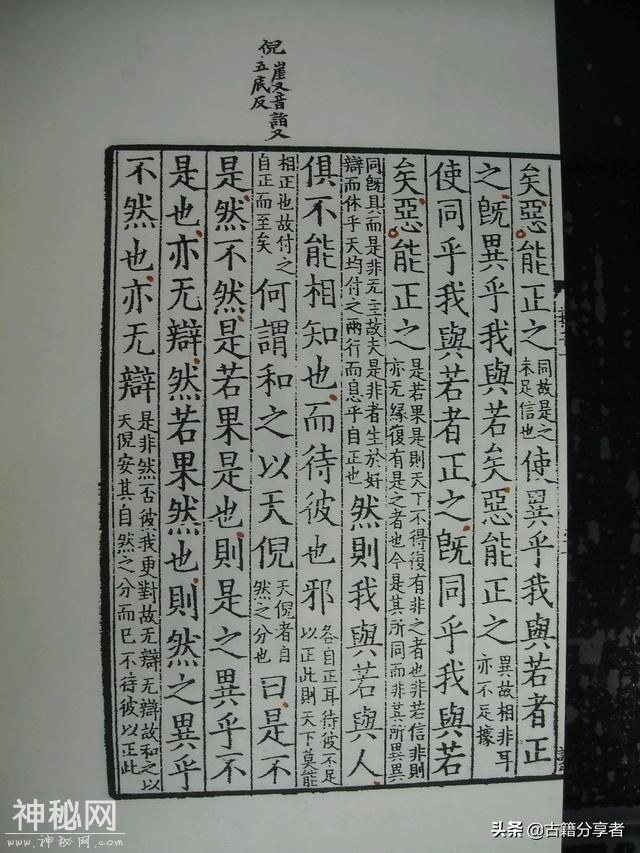 倪崖又音詣又五底反
矣惡能正之同故是之未足信也使異乎我與若者正
之旣異乎我與若矣惡能正之異故相非耳亦不足據
使同乎我與若者正之旣同乎我與若
矣惡能正之是若果是則天下不得復有非之者也非若信非則亦无緣復有是之者也今是其所同而非其所異異
同旣具而是非无主故夫是非者生於好辯而休乎天均付之兩行而息乎自正也然則我與若與人
俱不能相知也而待彼也邪各自正耳待彼不足以正此則天下莫能
相正也故付之自正而至矣何謂和之以天倪天倪者自然之分也曰是不
是然不然是若果是也則是之異乎不
是也亦无辯然若果然也則然之異乎
不然也亦无辯是非然否彼我更對故无辯无辯故和之以天倪安其自然之分而已不待彼以正此
神秘网
www.shenmiw.com
头条 @古籍分享者